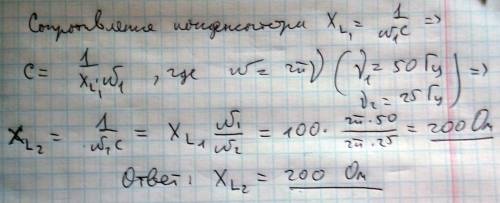 Сопротивление конденсатора X_{L_1} = \frac{1}{ω_1 C} =>
C = \frac{1}{X_{L_1} ω_1}, где ω = 2πν (ν_1 = 50 Гц ν_2 = 25 Гц) =>
X_{L_2} = \frac{1}{ω_1 C} = X_{L_1} \frac{ω_1}{ω_2} = 100 · \frac{2π · 50}{2π · 25} = 200 Ом
Ответ: X_{L_2} = 200 Ом